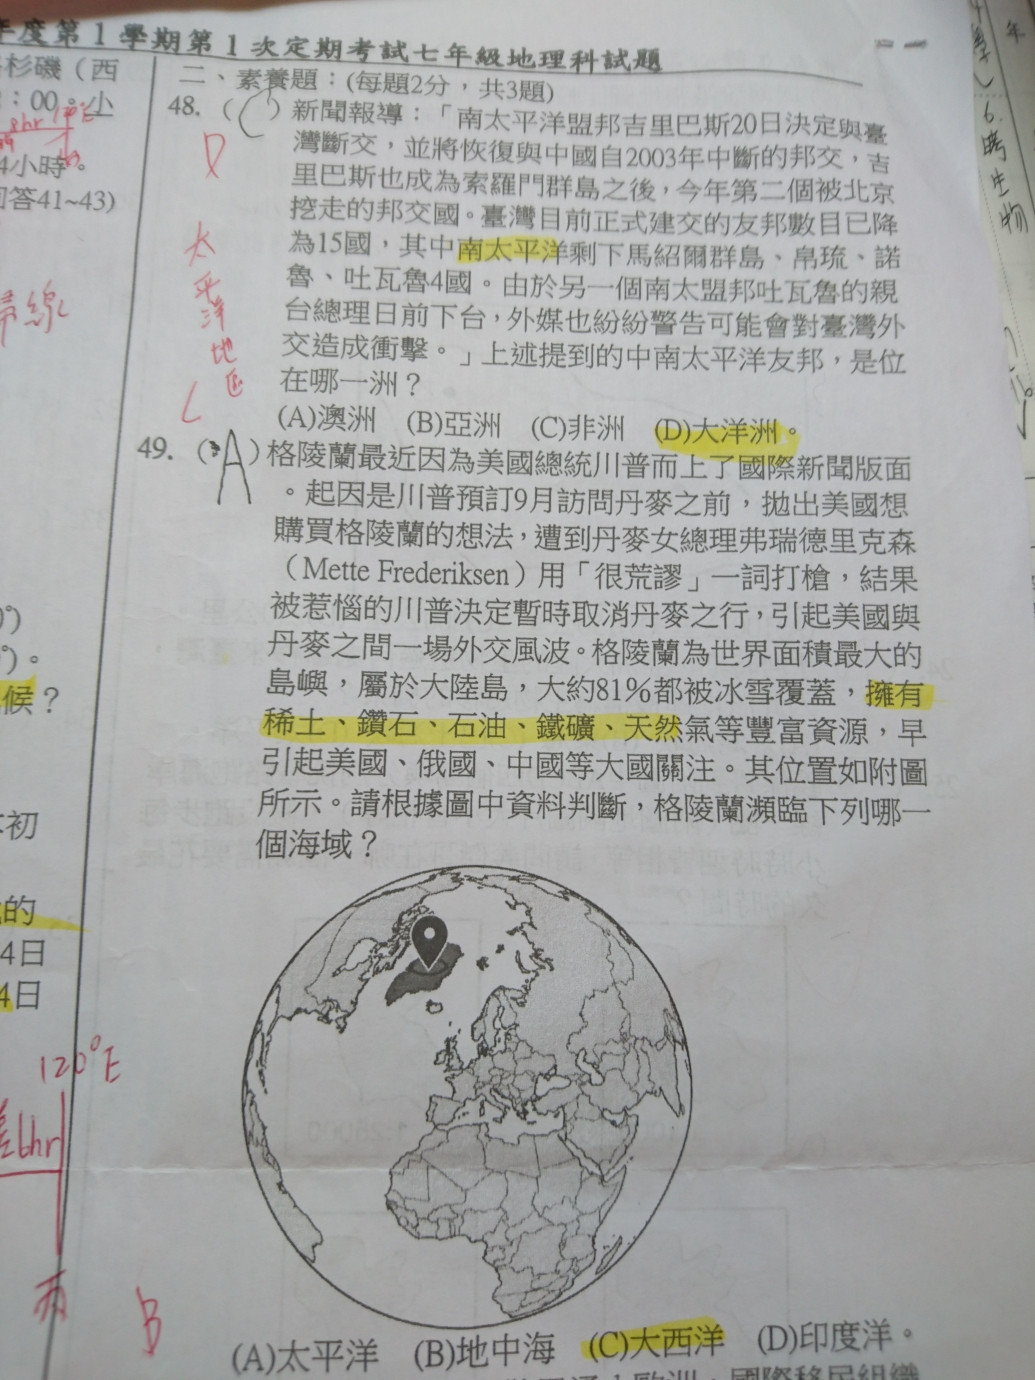 年度第1學期第1次定期考試七年級地理科試題
杉磯（西
：00。小
8hr 120°E
4小時。
回答41~43)
線
0°)
°)。
候？
初
的
4日
4日
120°E
差6hr
二、素養題：(每題2分，共3題)
48. (C) 新聞報導：「南太平洋盟邦吉里巴斯20日決定與臺
灣斷交，並將恢復與中國自2003年中斷的邦交，吉
里巴斯也成為索羅門群島之後，今年第二個被北京
挖走的邦交國。臺灣目前正式建交的友邦數目已降
為15國，其中南太平洋剩下馬紹爾群島、帛琉、諾
魯、吐瓦魯4國。由於另一個南太盟邦吐瓦魯的親
台總理日前下台，外媒也紛紛警告可能會對臺灣外
交造成衝擊。」上述提到的中南太平洋友邦，是位
在哪一洲？
(A)澳洲 (B)亞洲 (C)非洲 (D)大洋洲。
D
太平洋地區
49. (A) 格陵蘭最近因為美國總統川普而上了國際新聞版面
。起因是川普預訂9月訪問丹麥之前，拋出美國想
購買格陵蘭的想法，遭到丹麥女總理弗瑞德里克森
（Mette Frederiksen）用「很荒謬」一詞打槍，結果
被惹惱的川普決定暫時取消丹麥之行，引起美國與
丹麥之間一場外交風波。格陵蘭為世界面積最大的
島嶼，屬於大陸島，大約81%都被冰雪覆蓋，擁有
稀土、鑽石、石油、鐵礦、天然氣等豐富資源，早
引起美國、俄國、中國等大國關注。其位置如附圖
所示。請根據圖中資料判斷，格陵蘭瀕臨下列哪一
個海域？
B
(A)太平洋 (B)地中海 (C)大西洋 (D)印度洋。
年
6.
生物